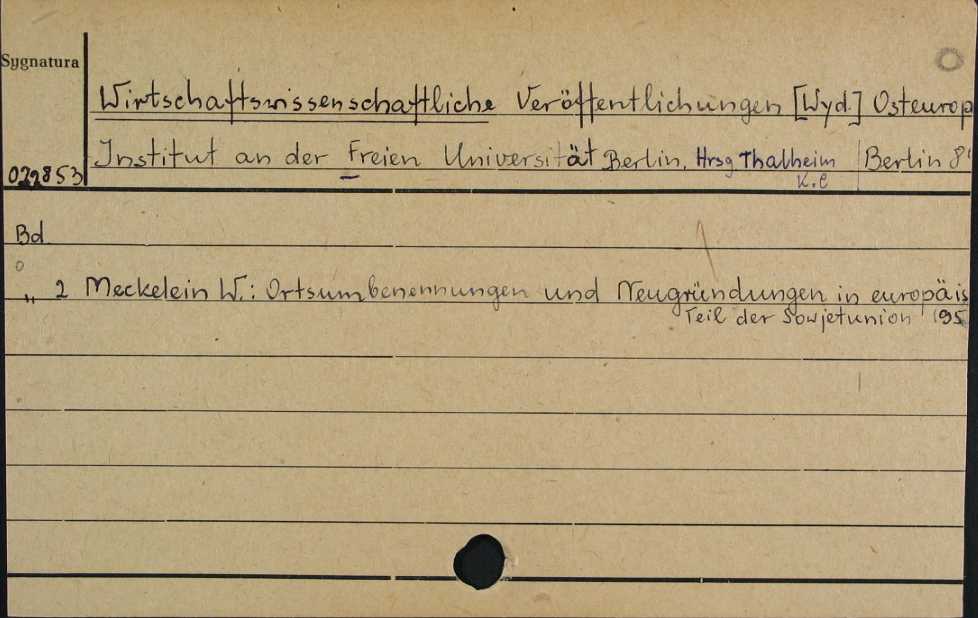 Sygnatura
Wirtschaftswissenschaftliche Veröffentlichungen [Wyd.] Osteurop
Institut an der Freien Universität Berlin. Hrsg. Thalheim Berlin 8°
K.C
022853
Bd.
" 2 Meckelein W.: Ortsumbenennungen und Neugründungen in europäis
Teil der Sowjetunion 195